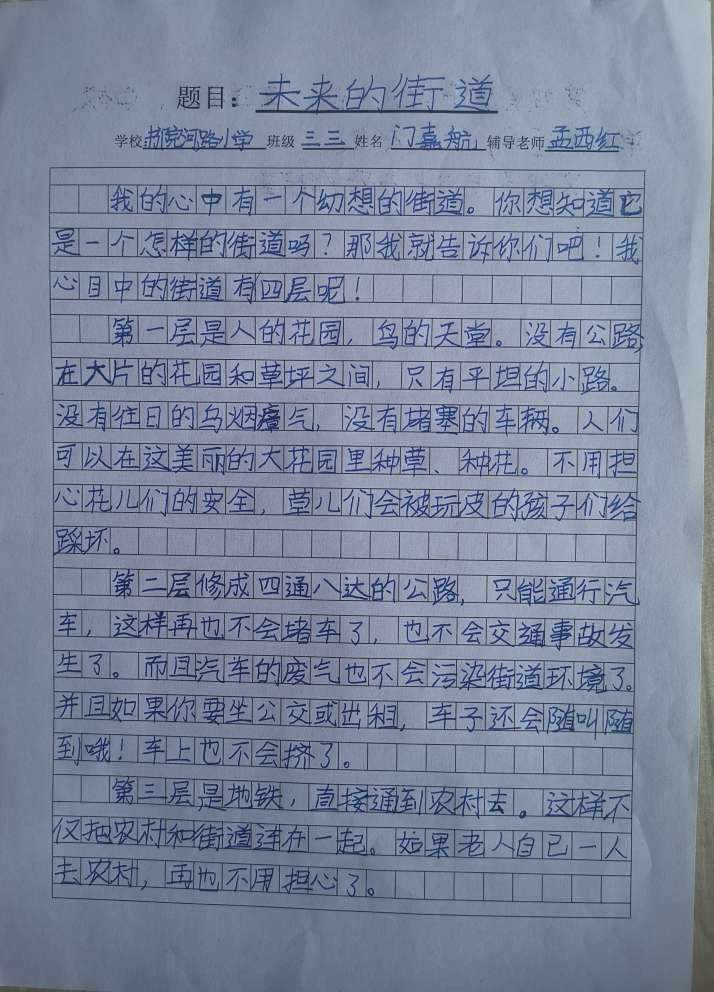 题目：未来的街道
学校 书院河路小学 班级 三三 姓名 门嘉航 辅导老师 孟西红
我的心中有一个幻想的街道。你想知道它
是一个怎样的街道吗？那我就告诉你们吧！我
心目中的街道有四层呢！
第一层是人的花园，鸟的天堂。没有公路，
在大片的花园和草坪之间，只有平坦的小路。
没有往日的乌烟瘴气，没有堵塞的车辆。人们
可以在这美丽的大花园里种草、种花。不用担
心花儿们的安全，草儿们会被玩皮的孩子们给
踩坏。
第二层修成四通八达的公路，只能通行汽
车，这样再也不会堵车了，也不会交通事故发
生了。而且汽车的废气也不会污染街道环境了。
并且如果你要坐公交或出租，车子还会随叫随
到哦！车上也不会挤了。
第三层是地铁，直接通到农村去。这样不
仅把农村和街道连在一起。如果老人自己一人
去农村，再也不用担心了。